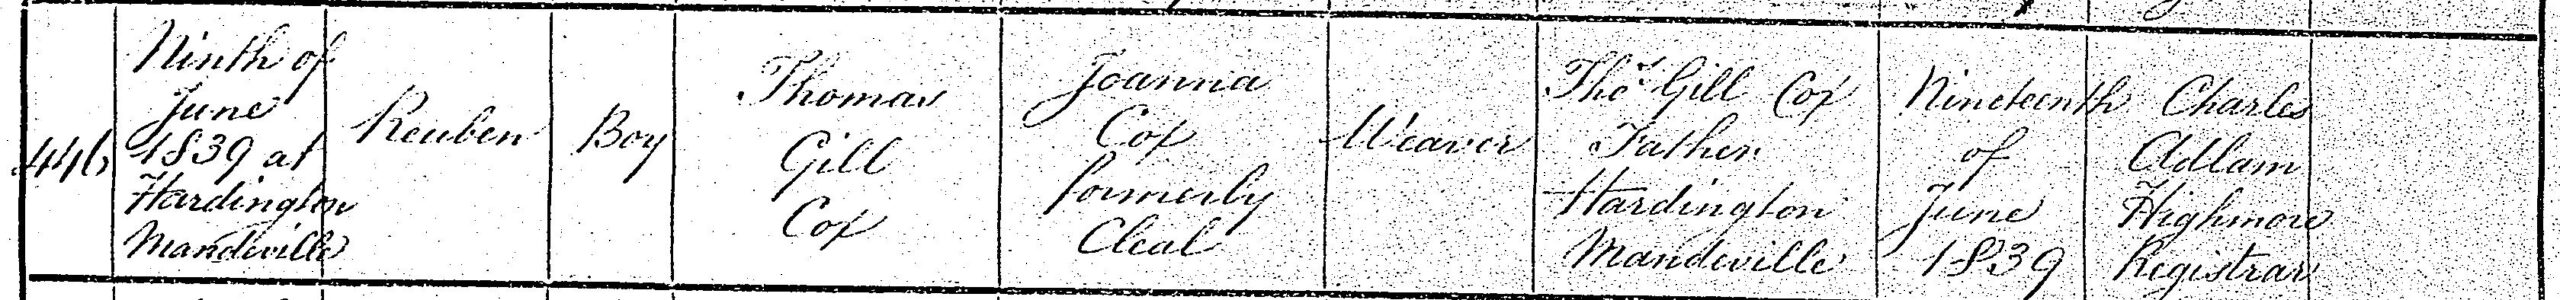 446
Ninth of
June
1839 at
Hardington
Mandeville
Reuben
Boy
Thomas
Gill
Cox
Joanna
Cox
formerly
Cleal
Weaver
Thos Gill Cox
Father
Hardington
Mandeville
Nineteenth
of
June
1839
Charles
Adlam
Highmore
Registrar